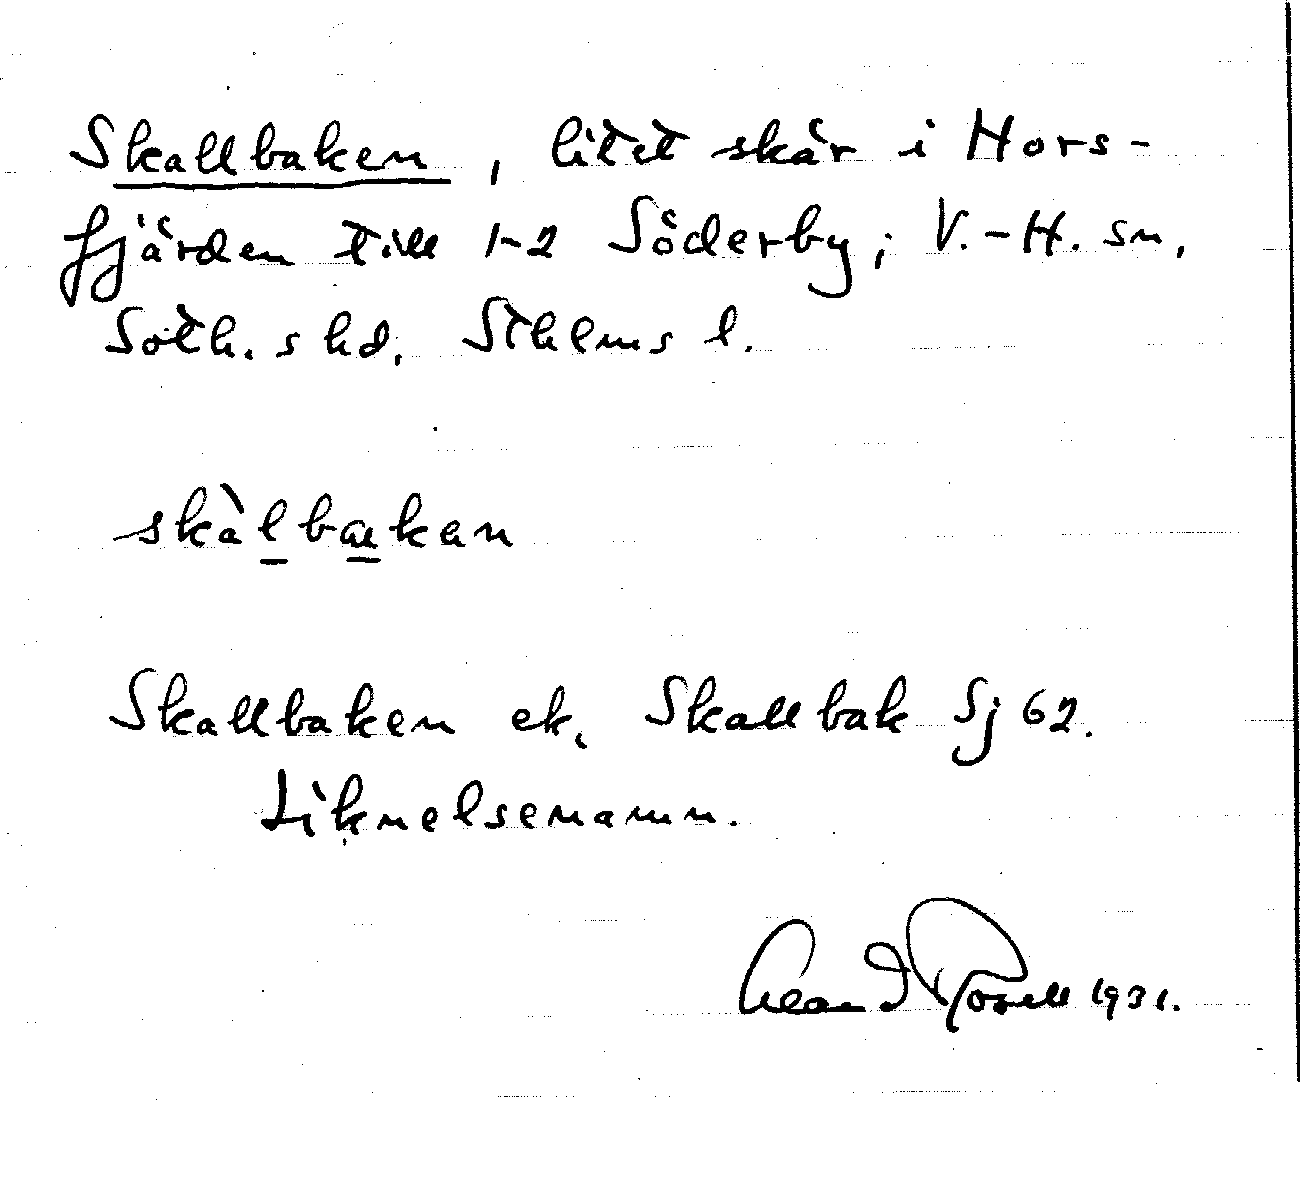 Skallbaken, litet skär i Hors-
fjärden till 1-2 Söderby, V.-H. sn,
Soth. s hd, Sthlms l.
skàlbakan
Skallbaken ek. Skallbak Sj 62.
Liknelsenamn.
1931.